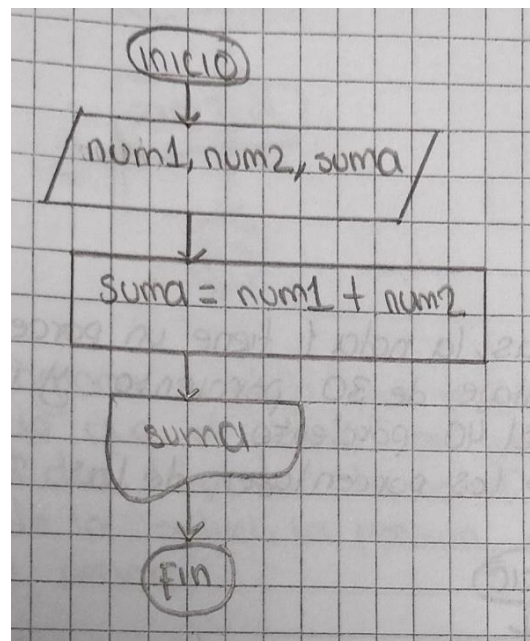 inicio
num1, num2, suma
suma = num1 + num2
suma
Fin